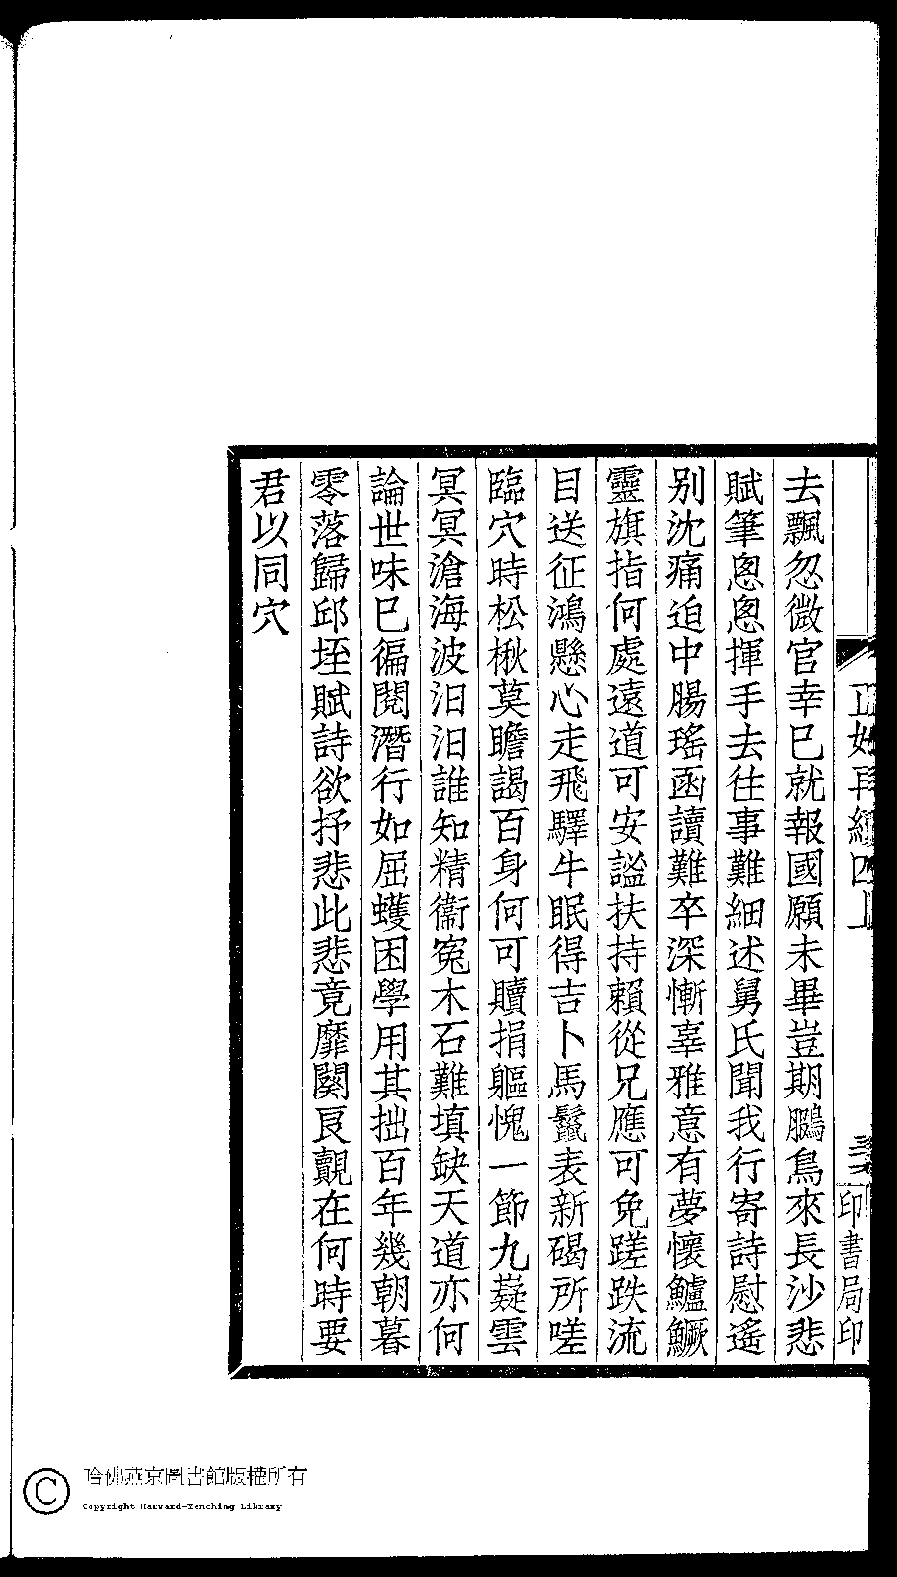 去飄忽微官幸已就報國願未畢豈期鵩鳥來長沙悲
賦筆悤悤揮手去往事難細述舅氏聞我行寄詩慰遙
别沈痛迫中腸瑤函讀難卒深慚辜雅意有夢懷鱸鱖
靈旗指何處遠道可安謐扶持賴從兄應可免蹉跌流
目送征鴻懸心走飛驛牛眠得吉卜馬鬣表新碣所嗟
臨穴時松楸莫瞻謁百身何可贖捐軀愧一節九嶷雲
冥冥滄海波汨汨誰知精衞寃木石難填缺天道亦何
論世味已徧閱潛行如屈蠖困學用其拙百年幾朝暮
零落歸邱垤賦詩欲抒悲此悲竟靡闋㫐覿在何時要
君以同穴
再續四
印書局印
哈佛燕京圖書館版權所有
Copyright Harvard-Yenching Library